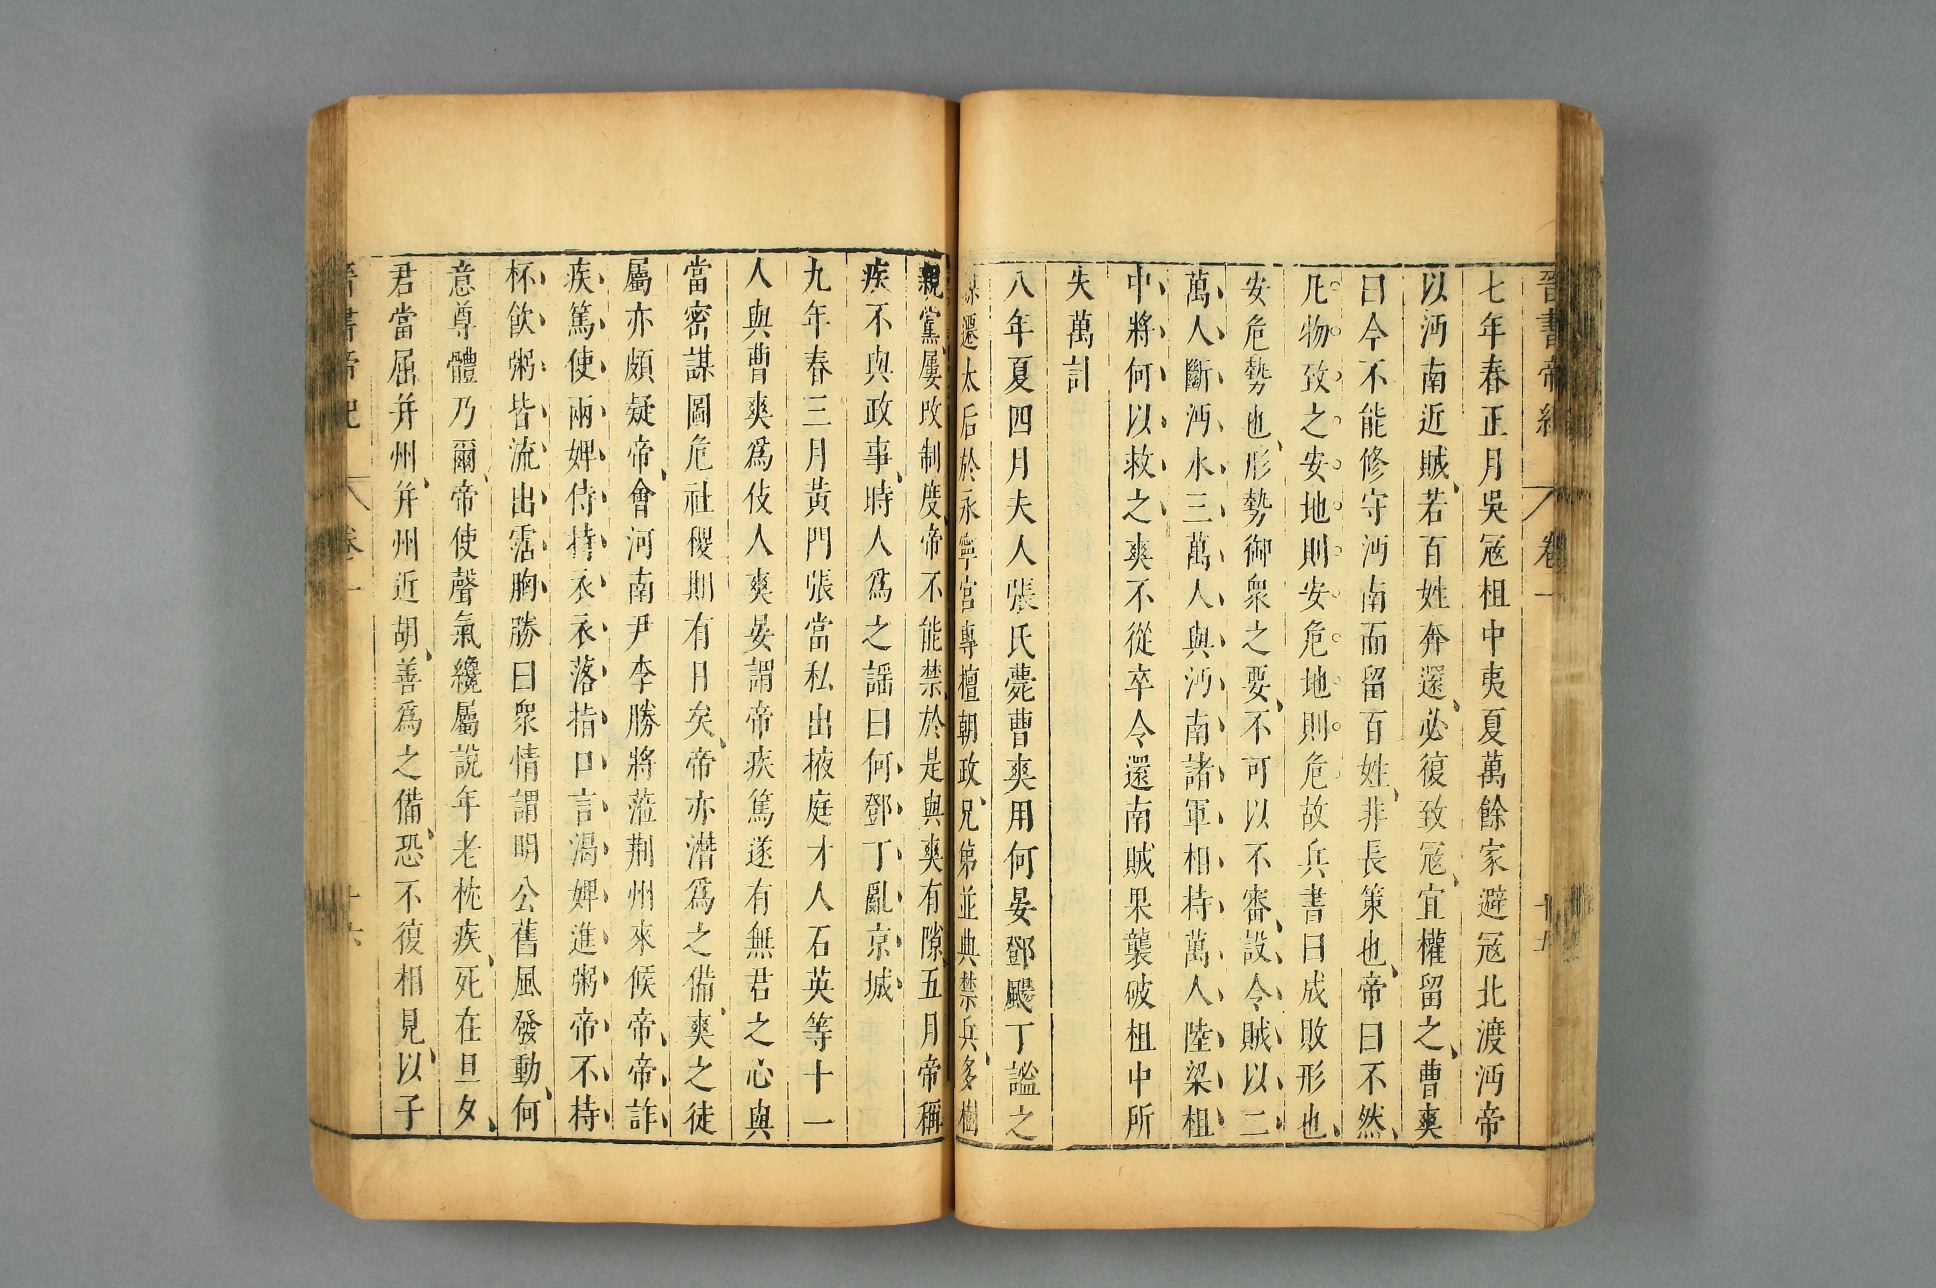 晉書帝紀 卷一
七年春正月吳寇柤中夷夏萬餘家避寇北渡沔帝
以沔南近賊若百姓奔還必復致寇宜權留之曹爽
曰今不能修守沔南而留百姓非長策也帝曰不然
凡物致之安地則安危地則危故兵書曰成敗形也
安危勢也形勢御衆之要不可以不審設令賊以二
萬人斷沔水三萬人與沔南諸軍相持萬人陸梁柤
中將何以救之爽不從卒令還南賊果襲破柤中所
失萬計
八年夏四月夫人張氏薨曹爽用何晏鄧颺丁謐之
謀遷太后於永寧宮專擅朝政兄弟並典禁兵多樹
親黨屢改制度帝不能禁於是與爽有隙五月帝稱
疾不與政事時人爲之謡曰何鄧丁亂京城
九年春三月黃門張當私出掖庭才人石英等十一
人與曹爽爲伎人爽晏謂帝疾篤遂有無君之心與
當密謀圖危社稷期有日矣帝亦潛爲之備爽之徒
屬亦頗疑帝會河南尹李勝將蒞荆州來候帝帝詐
疾篤使兩婢侍持衣衣落指口言渴婢進粥帝不持
杯飲粥皆流出霑胸勝曰衆情謂明公舊風發動何
意尊體乃爾帝使聲氣纔屬說年老枕疾死在旦夕
君當屈并州并州近胡善爲之備恐不復相見以子
晉書帝紀 卷一 十六